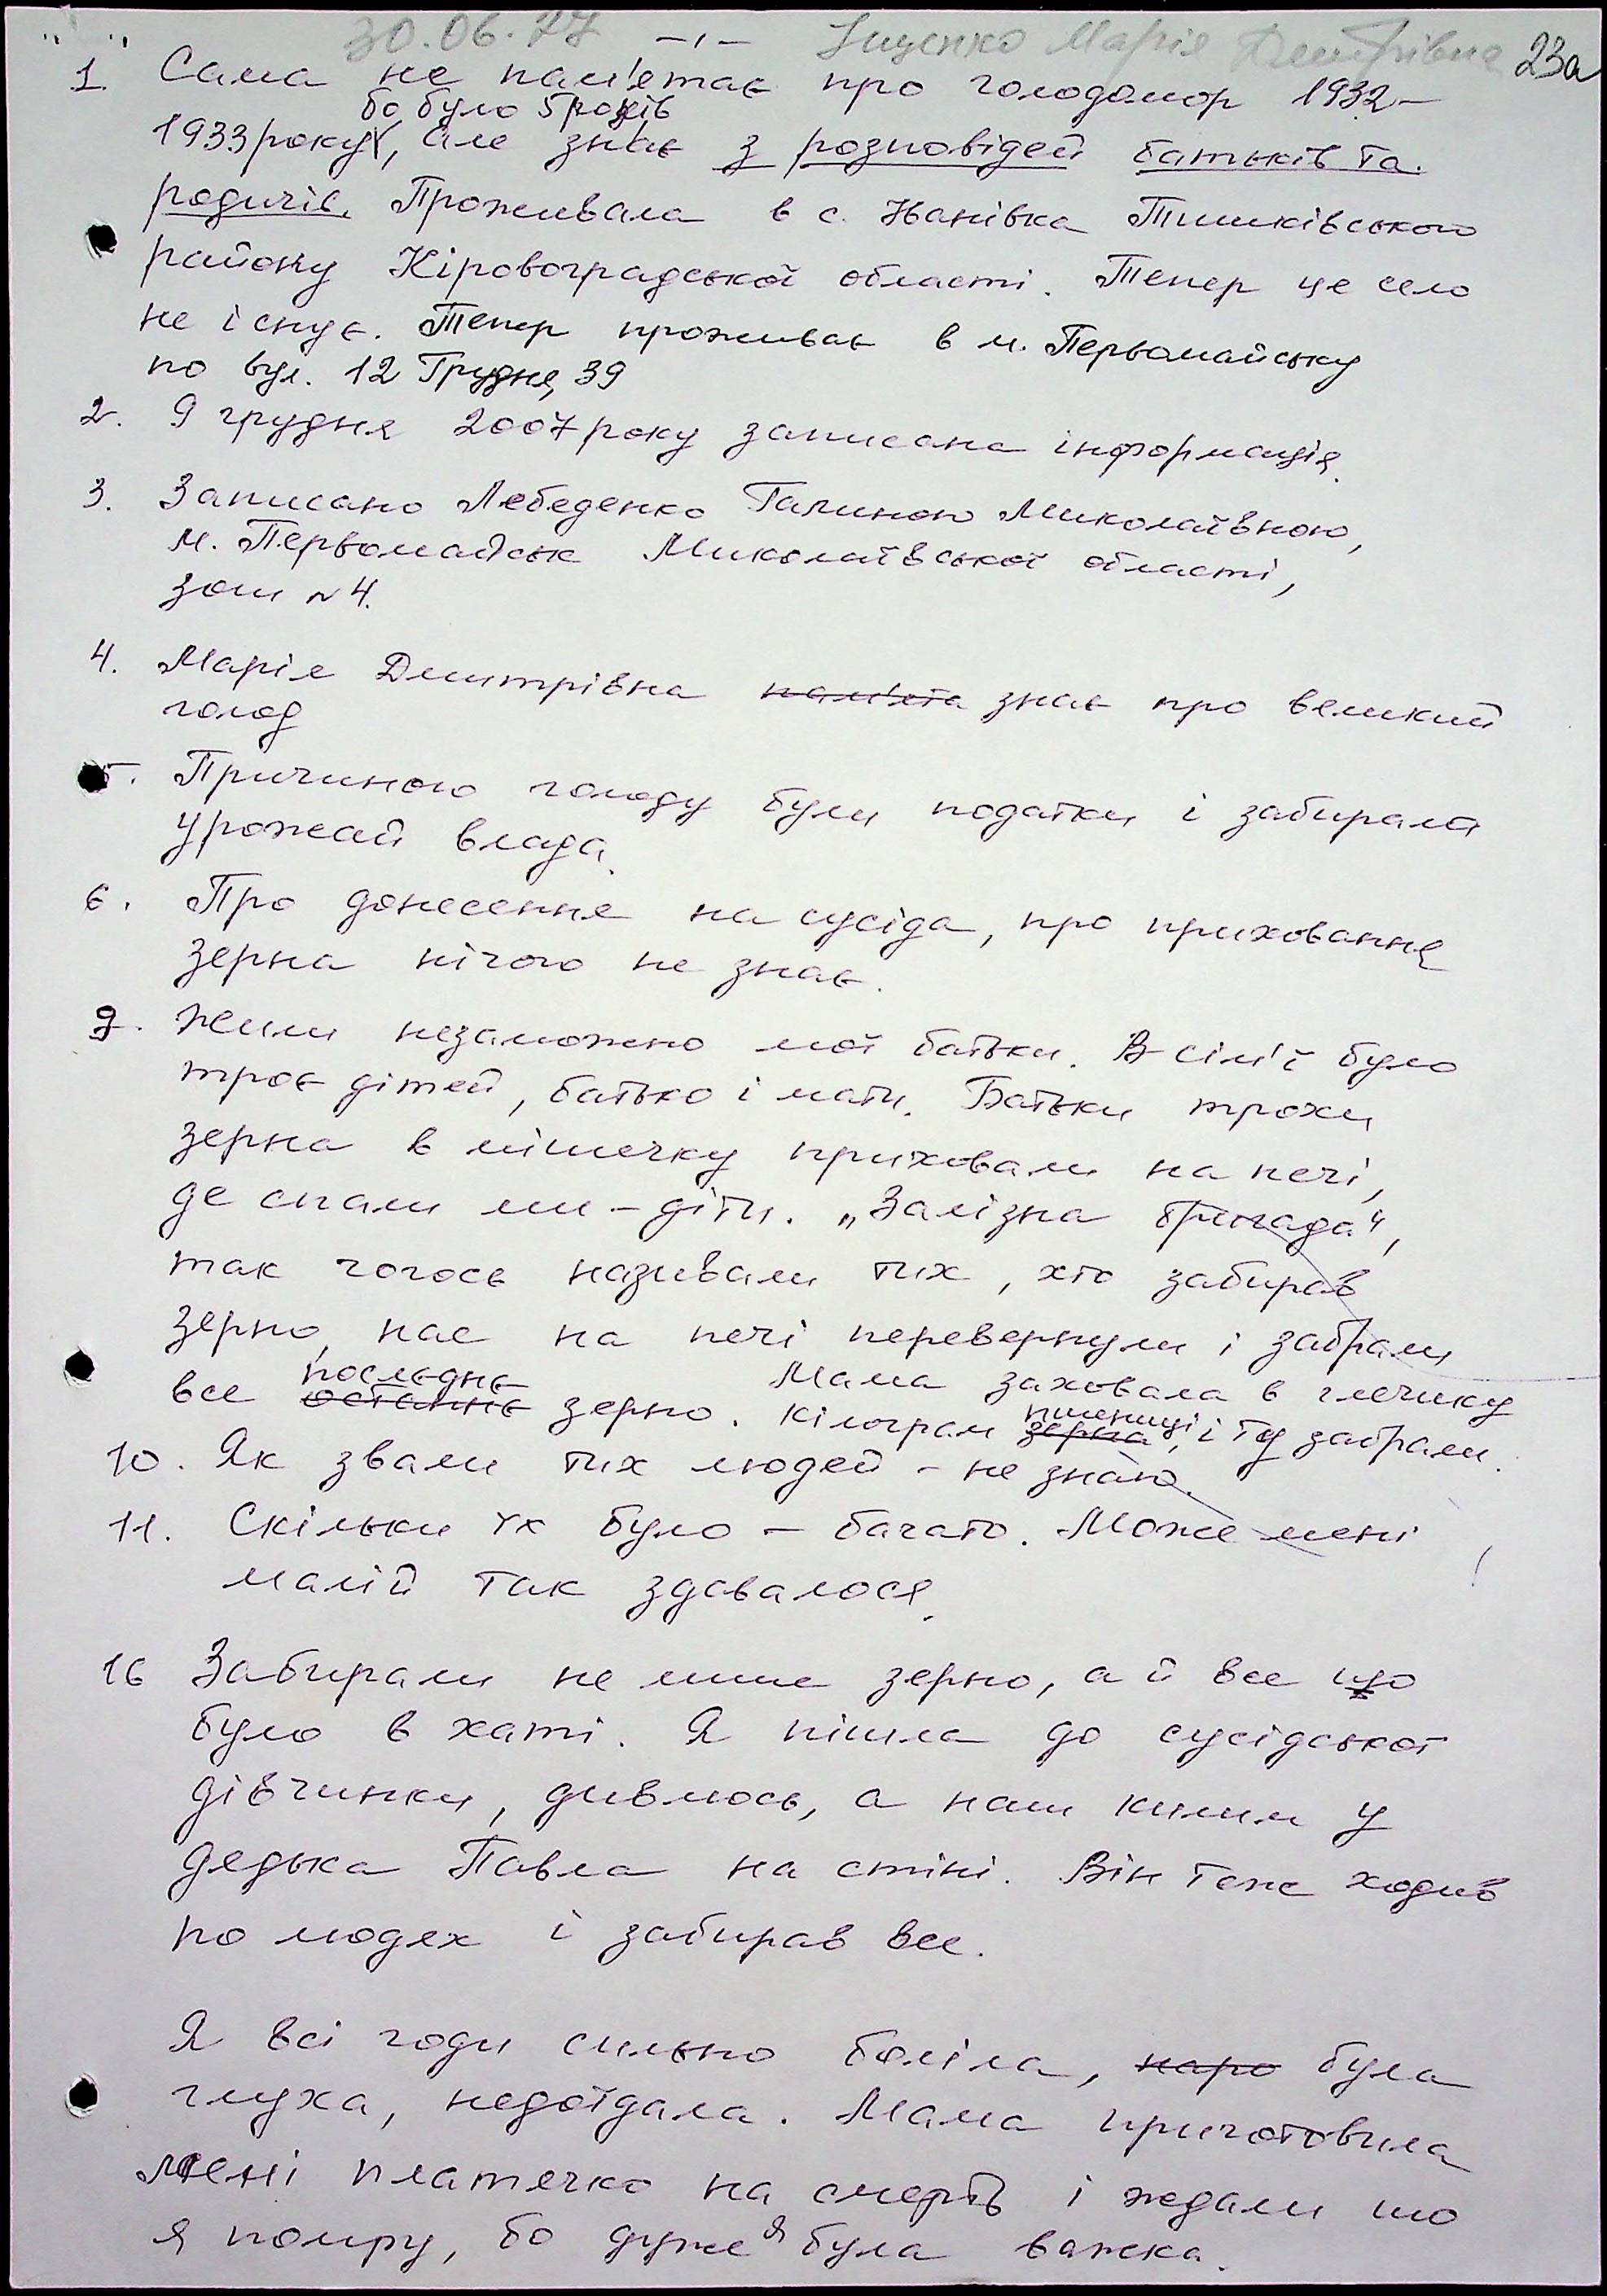 30.06.27 -1- Іщенко Марія Дмитрівна 23а
1. Сама не пам'ятає про голодомор 1932-
бо було 5 років
1933 року, але знає з розповідей батьків та
родичів. Проживала в с. Нанівка Тишківського
району Кіровоградської області. Тепер це село
не існує. Тепер проживає в м. Первомайську
по вул. 12 Грудня, 39
2. 9 грудня 2007 року записана інформація.
3. Записано Лебеденко Галиною Миколаївною,
м. Первомайськ Миколаївської області,
зош №4.
4. Марія Дмитрівна пам'ята знає про великий
голод
5. Причиною голоду були податки і забирала
урожай влада.
6. Про донесення на сусіда, про приховання
зерна нічого не знає.
9. Жили незаможно мої батьки. В сім'ї було
троє дітей, батько і мати. Батьки трохи
зерна в мішечку приховали на печі,
де спали ми - діти. „Залізна бригада",
так чогось називали тих, хто забирав
зерно, нас на печі перевернули і забрали
послєднє Мама заховала в глечику
все останнє зерно. кілограм зерна пшениці, і ту забрали.
10. Як звали тих людей - не знаю.
11. Скільки їх було - багато. Може мені
малій так здавалося.
16 Забирали не лише зерно, а й все що
було в хаті. Я пішла до сусідської
дівчинки, дивлюсь, а наш килим у
дядька Павла на стіні. Він теж ходив
по людях і забирав все.
Я всі годи сильно боліла, наро була
глуха, недоїдала. Мама приготовила
мені платтячко на смерть і ждали шо
я помру, бо дуже я була важка.